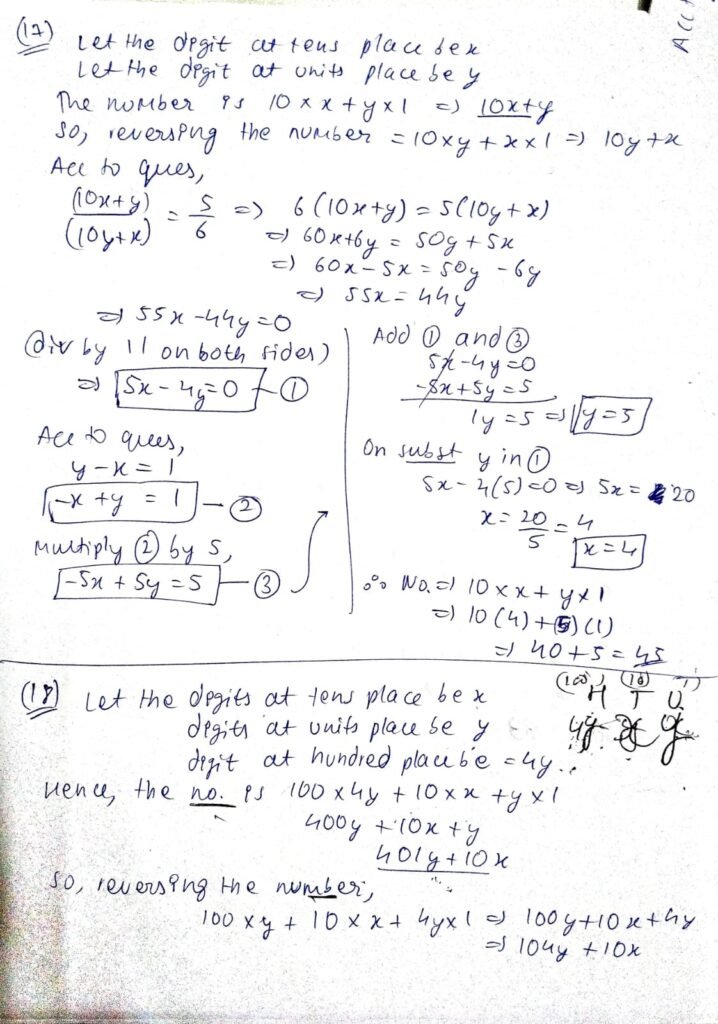 Acc t
(17) Let the digit at tens place be x
Let the digit at units place be y
The number is 10 × x + y × 1 => 10x+y
So, reversing the number = 10×y + x×1 => 10y+x
Acc to ques,
(10x+y)/(10y+x) = 5/6 => 6(10x+y) = 5(10y+x)
=> 60x+6y = 50y + 5x
=> 60x - 5x = 50y - 6y
=> 55x = 44y
=> 55x - 44y = 0
(div by 11 on both sides)
=> 5x - 4y = 0 - ①
Acc to ques,
y - x = 1
-x + y = 1 - ②
Multiply ② by 5,
-5x + 5y = 5 - ③
Add ① and ③
5x - 4y = 0
-5x + 5y = 5
1y = 5 => y = 5
On subst y in ①
5x - 4(5) = 0 => 5x = 20
x = 20/5 = 4
x = 4
∴ No. => 10 × x + y × 1
=> 10(4) + (5)(1)
=> 40 + 5 = 45
(18) Let the digits at tens place be x
digits at units place be y
digit at hundred place be = 4y.
(100) (10) (1)
H T U
4y x y
Hence, the no. is 100 × 4y + 10 × x + y × 1
400y + 10x + y
401y + 10x
So, reversing the number,
100 × y + 10 × x + 4y × 1 => 100y + 10x + 4y
=> 104y + 10x